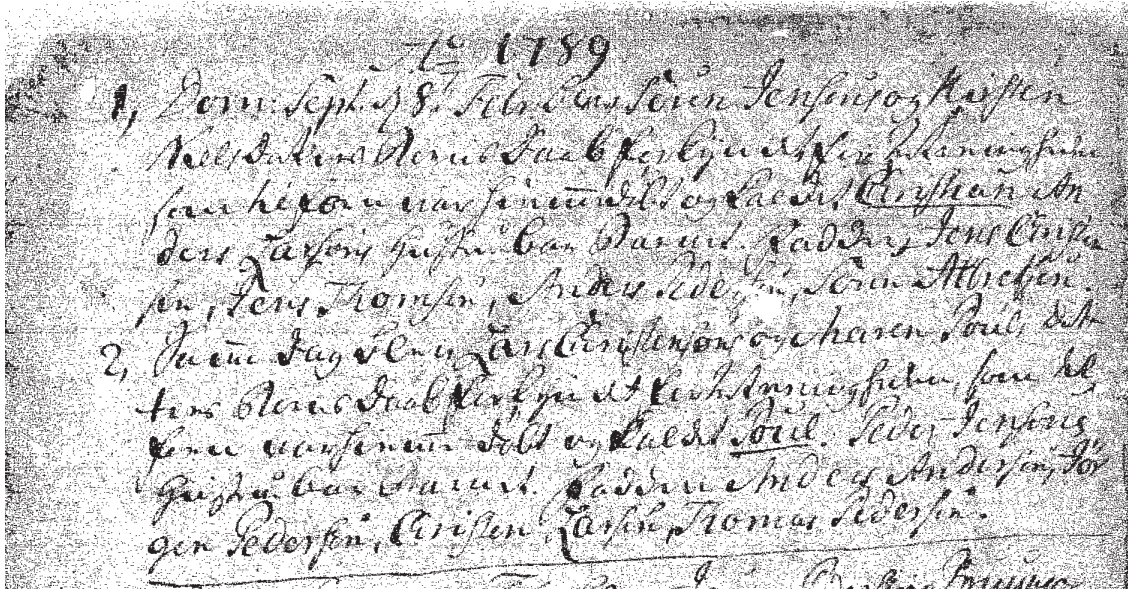 Ao 1789
1, Dom: Sept: d 8. Febr: blev Søren Jensens og Kirsten
Nielsdatters Barns Daab forkyndet for Meenigheden
som hiemme var hiemmedøbt og kaldet Christian An
ders Larsens Hustrue bar Barnet. Fadderne Jens Christen
sen, Jens Thomsen, Anders Pedersen, Søren Albretsen.
2, Samme Dag blev Lars Christensens og Maren Pouls dat
ters Barns Daab forkyndet for Meenigheden, som
var hiemme døbt og kaldet Poul. Peder Jensens
Hustrue bar Barnet. Fadderne Anders Andersen, Jør
gen Pedersen, Christen Larsen, Thomas Pedersen.